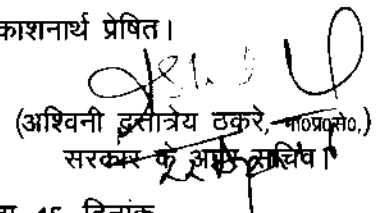 काशनार्थ प्रेषित।
(अश्विनी दत्तात्रेय ठकरे, भा०प्र०से०,)
सरकार के अपर सचिव।
दिनांक